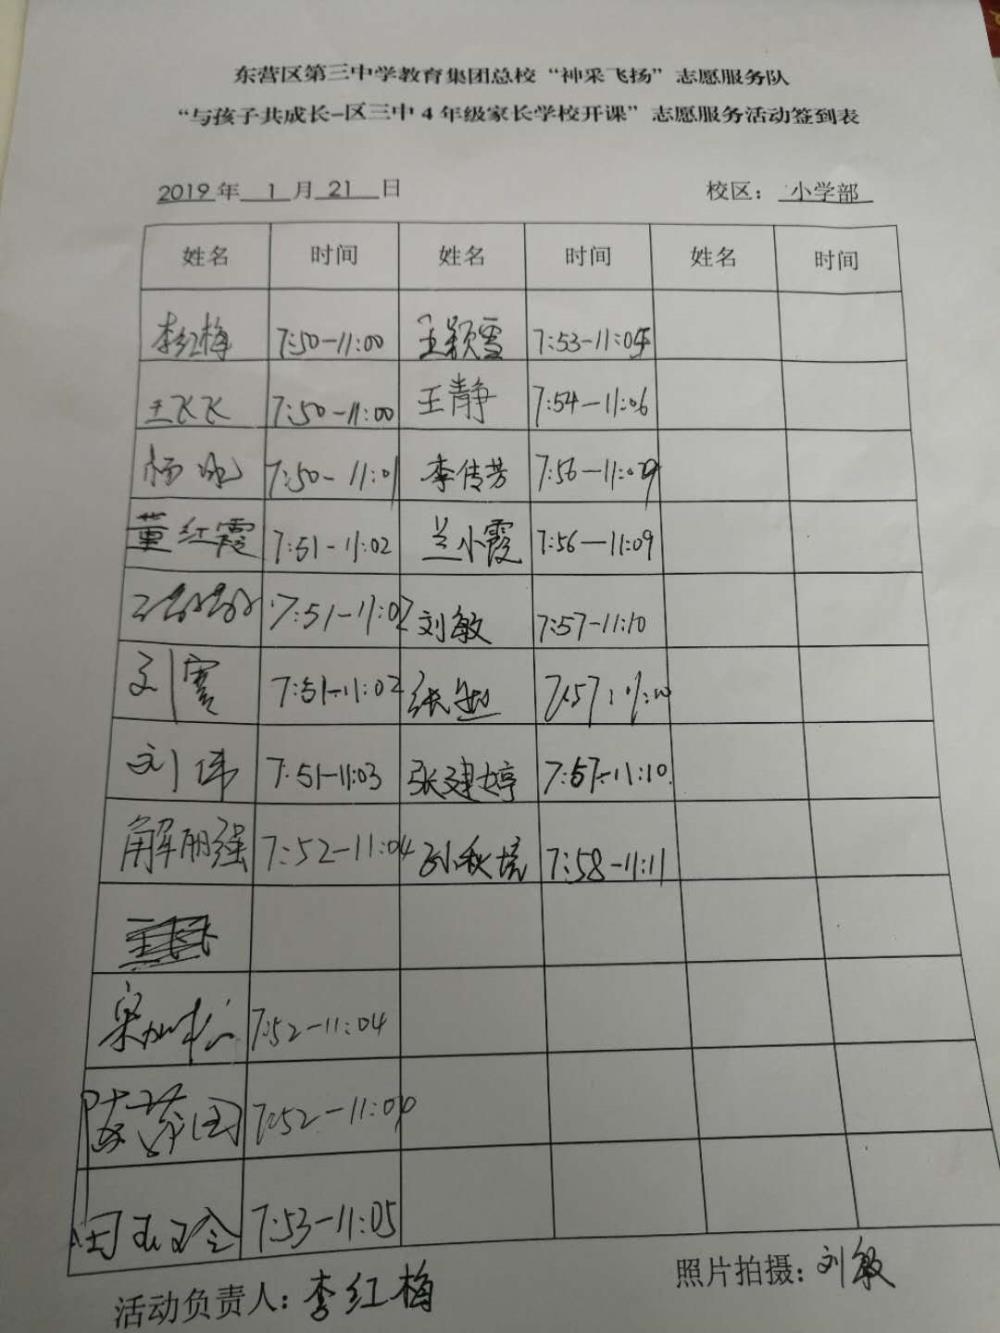 东营区第三中学教育集团总校“神采飞扬”志愿服务队
“与孩子共成长-区三中4年级家长学校开课”志愿服务活动签到表
2019年 1 月 21 日 校区： 小学部
姓名 时间 姓名 时间 姓名 时间
李红梅 7:50-11:00 王颖雪 7:53-11:05
王飞飞 7:50-11:00 王静 7:54-11:06
杨 7:50-11:01 李传芳 7:56-11:09
董红霞 7:51-11:02 兰小霞 7:56-11:09
7:51-11:02 刘敏 7:57-11:10
刘 7:51-11:02 张 7:57
刘伟 7:51-11:03 张建婷 7:57-11:10
解丽强 7:52-11:04 孙秋 7:58-11:11
7:52-11:04
7:52-11:0
田 7:53-11:05
活动负责人：李红梅 照片拍摄：刘敏